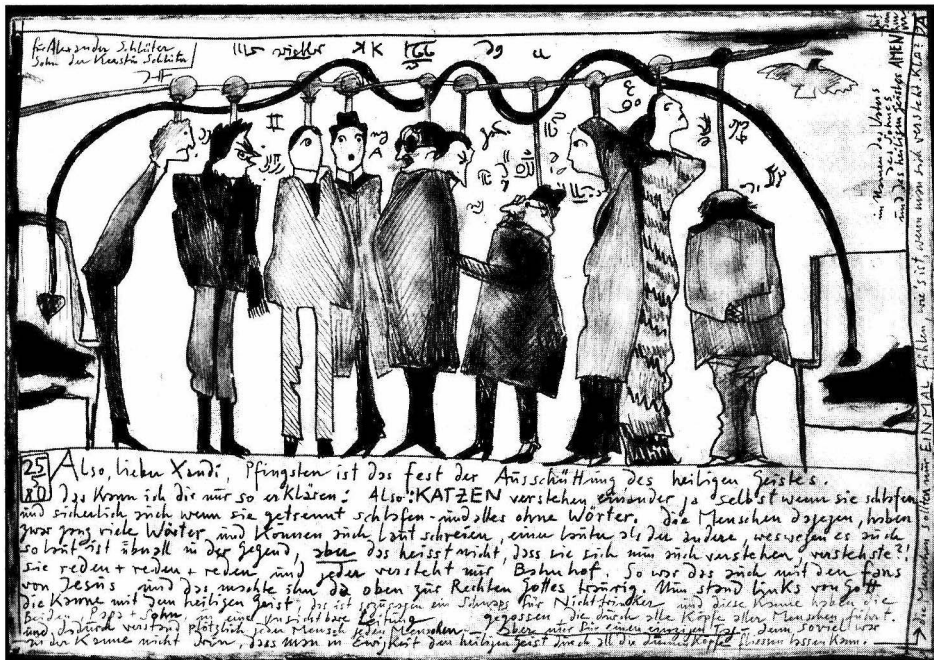 für Alexander Schlüter
Sohn der Kerstin Schlüter
im Namen des Vaters
des Sohnes
und des heiligen Geistes AMEN
25/5 80
Also, lieber Xandi, Pfingsten ist das Fest der Ausschüttung des heiligen Geistes.
Das kann ich dir nur so erklären: Also: KATZEN verstehen einander ja selbst wenn sie schlafen
und sicherlich auch wenn sie getrennt schlafen - und alles ohne Wörter. Die Menschen dagegen, haben
zwar ganz viele Wörter und können auch laut schreien, einer lauter als der andere, weswegen es auch
so laut ist überall in der Gegend, aber das heisst nicht, dass sie sich nun auch verstehen, verstehste?!
sie reden + reden + reden und jeder versteht nur Bahnhof. So war das auch mit den Fans
von Jesus und das machte ihn da oben zur Rechten Gottes traurig. Nun stand links von Gott
die Kanne mit dem heiligen Geist, das ist sozusagen ein Schnaps für Nichttrinker und diese Kanne haben die
Beiden Papa + Sohn in eine unsichtbare Leitung gegossen die durch alle Köpfe aller Menschen führt.
und dadurch verstand plötzlich jeder Mensch jeden Menschen. Aber nur für einen einzigen Tag - denn soviel war
in der Kanne nicht drin, dass man in Ewigkeit den heiligen Geist durch all die Köpfe fliessen lassen kann.
→ die Menschen sollten nur EINMAL fühlen, wie's ist, wenn man sich versteht. Kla?